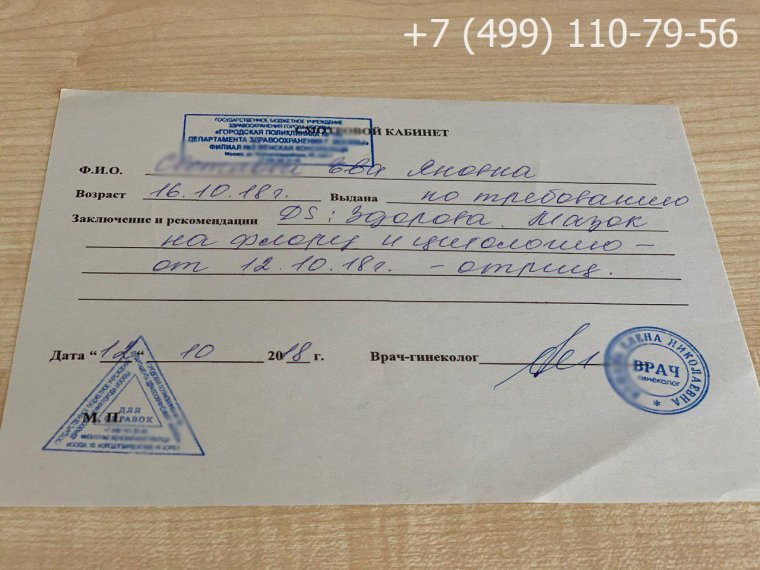 +7 (499) 110-79-56
ГОСУДАРСТВЕННОЕ БЮДЖЕТНОЕ УЧРЕЖДЕНИЕ
ЗДРАВООХРАНЕНИЯ ГОРОДА МОСКВЫ
«ГОРОДСКАЯ ПОЛИКЛИНИКА
ДЕПАРТАМЕНТА ЗДРАВООХРАНЕНИЯ Г. МОСКВЫ»
ФИЛИАЛ ЖЕНСКАЯ КОНСУЛЬТАЦИЯ
СМОТРОВОЙ КАБИНЕТ
Ф.И.О. Ева Яновна
Возраст 16.10.18г. Выдана по требованию
Заключение и рекомендации DS: Здорова. Мазок
на флору и цитологию –
от 12.10.18г. – отриц.
Дата “ 12 “ 10 2018 г. Врач-гинеколог
ЕЛЕНА НИКОЛАЕВНА
ВРАЧ
гинеколог
М. П.
ДЛЯ
СПРАВОК